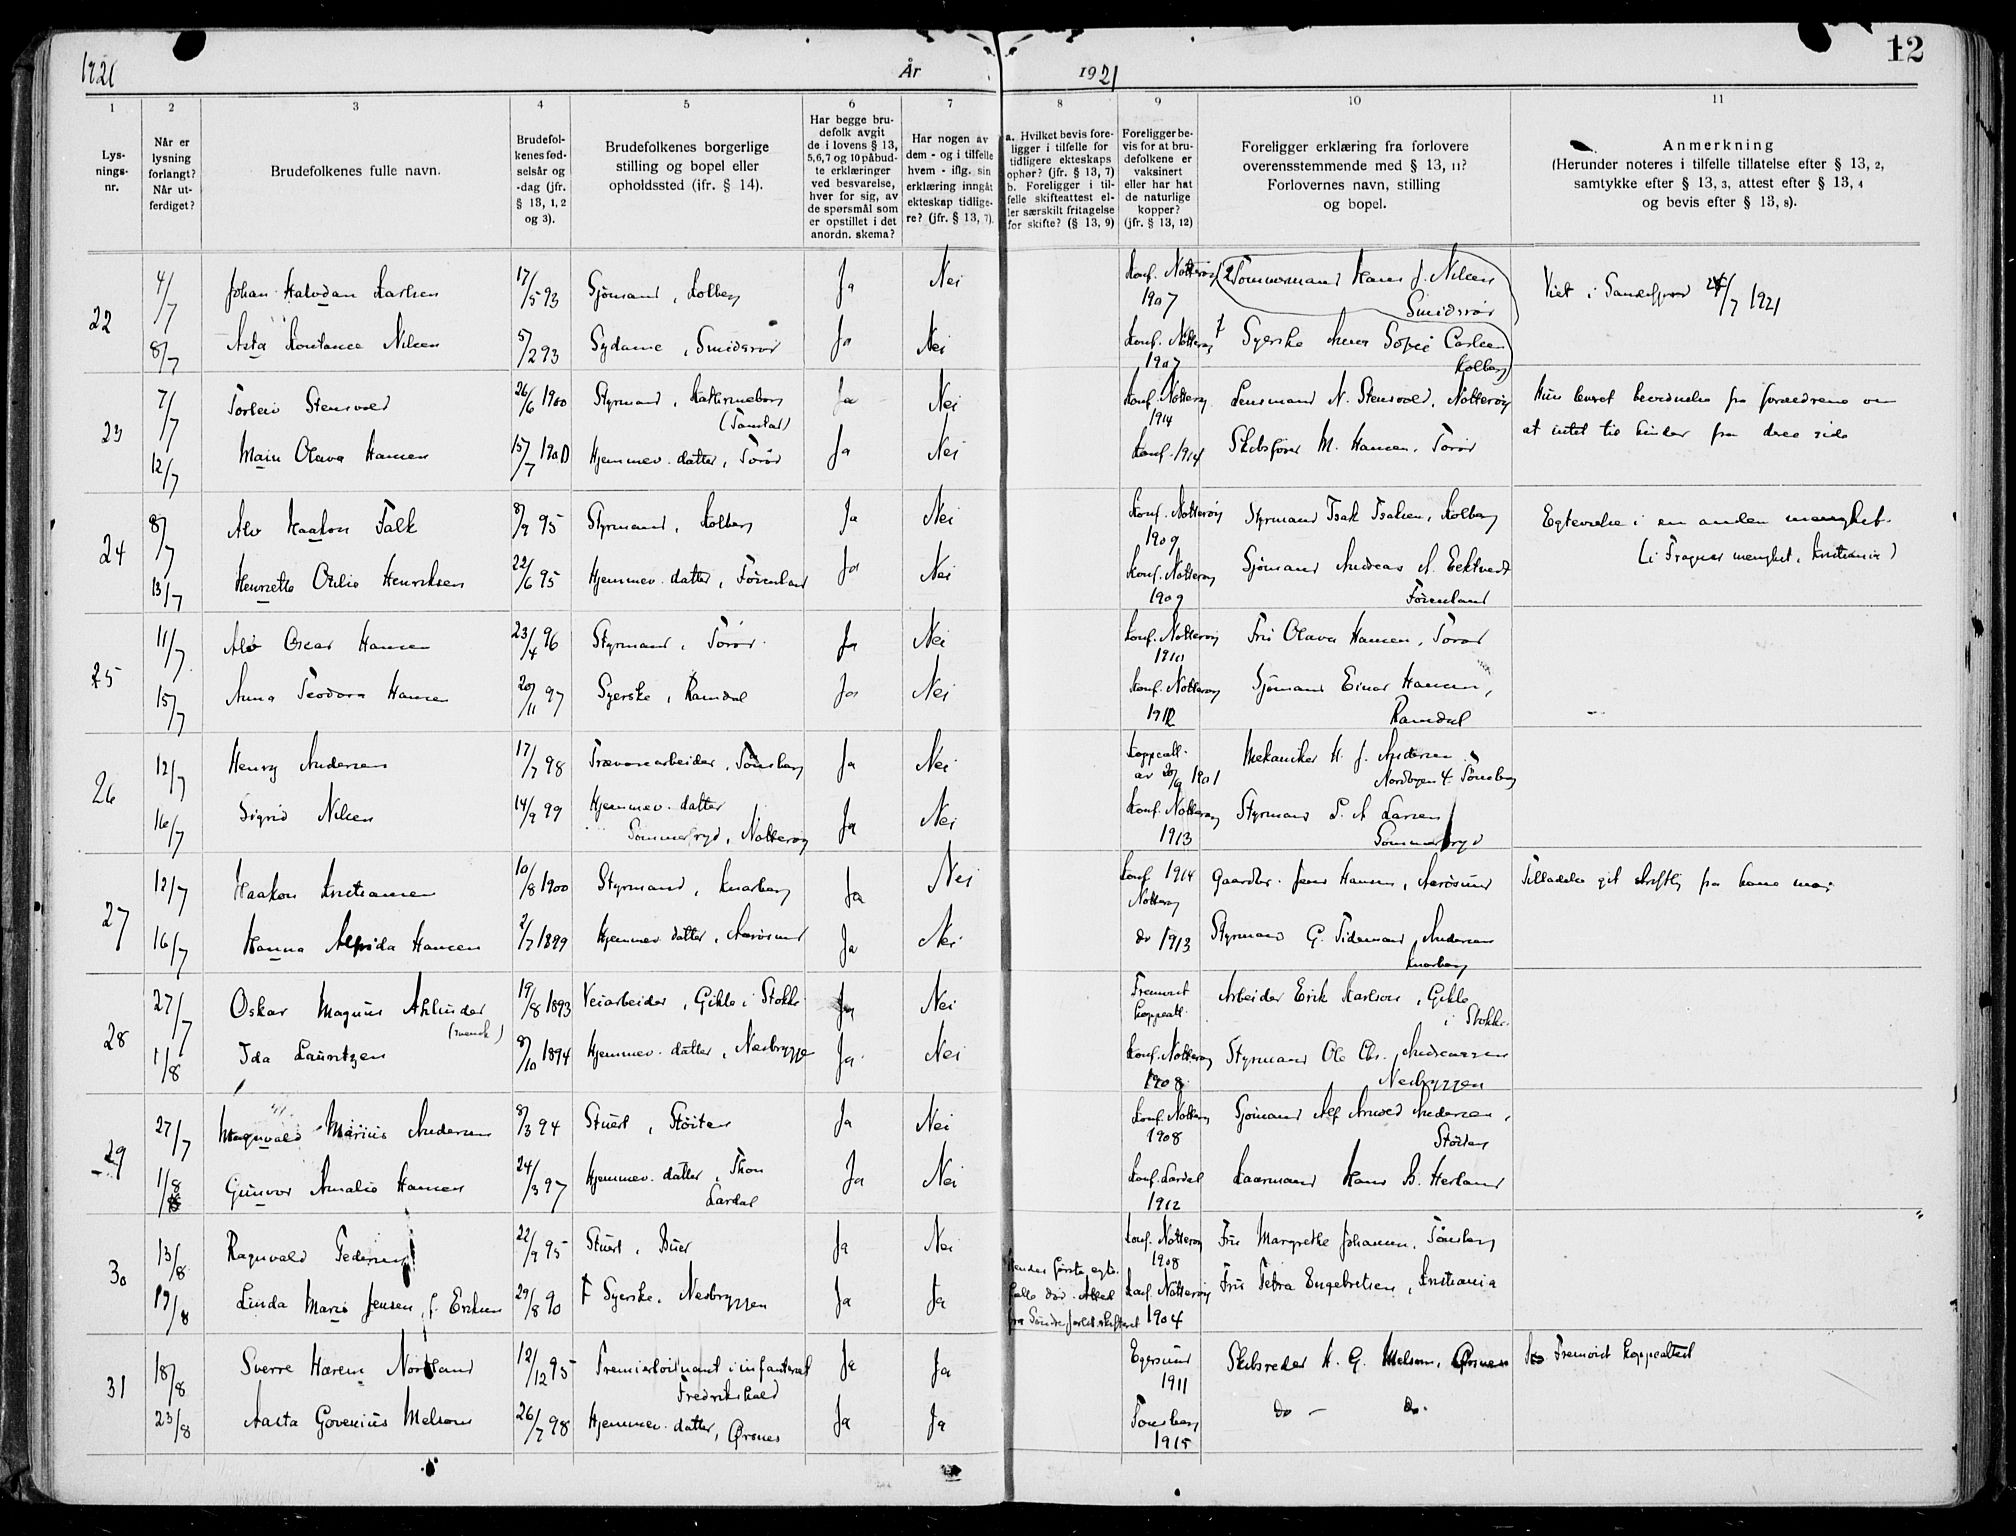 1921
År
1921
12
1 2 3 4 5 6 7 8 9 10 11
Lys-
nings-
nr.
Når er
lysning
forlangt?
Når ut-
ferdiget?
Brudefolkenes fulle navn.
Brudefol-
kenes fød-
selsår og
-dag (jfr.
§ 13, 1, 2
og 3).
Brudefolkenes borgerlige
stilling og bopel eller
opholdssted (ifr. § 14).
Har begge bru-
defolk avgit
de i lovens § 13,
5, 6, 7 og 10 påbud-
te erklæringer
ved besvarelse,
hver for sig, av
de spørsmål som
er opstillet i det
anordn. skema?
Har nogen av
dem - og i tilfelle
hvem - iflg. sin
erklæring inngåt
ekteskap tidlige-
re? (jfr. § 13, 7).
a. Hvilket bevis fore-
ligger i tilfelle for
tidligere ekteskaps
ophør? (jfr. § 13, 7)
b. Foreligger i til-
felle skifteattest el-
ler særskilt fritagelse
for skifte? (§ 13, 9)
Foreligger be-
vis for at bru-
defolkene er
vaksinert
eller har hat
de naturlige
kopper?
(jfr. § 13, 12)
Foreligger erklæring fra forlovere
overensstemmende med § 13, 11?
Forlovernes navn, stilling
og bopel.
Anmerkning
(Herunder noteres i tilfelle tillatelse efter § 13, 2,
samtykke efter § 13, 3, attest efter § 13, 4
og bevis efter § 13, 8).
22 4/7 Johan Halvdan Karlsen 17/5 93 Sjømand, Kolberg Ja Nei Konf. Nøtterøy 1907 2 Tømmermand Hans J. Nilsen Smidsrød Viet i Sandefjord 24/7 1921
8/7 Asta Konstance Nilsen 5/2 93 Sydame, Smidsrød Ja Nei Konf. Nøtterøy 1907 1 Syerske Anna Sofie Carlsen Kolberg
23 7/7 Torleiv Stensvold 26/6 1900 Styrmand, Kathrineborg (Tanstad) Ja Nei Konf. Nøtterøy 1914 Lensmand N. Stensvold, Nøtterøy Hun leveret bevidnelse fra forældrene om
12/7 Main Olava Hansen 15/7 1900 Hjemmev. datter, Torød Ja Nei Konf. 1914 Skibsfører M. Hansen, Torød at intet til hinder fra deres side
24 8/7 Alv Haakon Falk 8/9 95 Styrmand, Kolberg Ja Nei Konf. Nøtterøy 1909 Styrmand Isak Isaksen, Kolberg Egtevielse i en anden menighet.
13/7 Henriette Otilie Henriksen 22/6 95 Hjemmev. datter, Føienland Ja Nei Konf. Nøtterøy 1909 Sjømand Andreas A. Ektvedt Føienland (i Frogner menighet, Kristiania)
25 11/7 Alv Oscar Hansen 23/4 96 Styrmand, Torød. Ja Nei Konf. Nøtterøy 1910 Fru Olava Hansen, Torød
15/7 Anna Teodora Hansen 20/11 97 Syerske, Ramdal Ja Nei Konf. Nøtterøy 1912 Sjømand Einar Hansen, Ramdal
26 12/7 Henry Andersen 17/7 98 Trævarearbeider, Tønsberg Ja Nei Koppeatt. av 20/9 1901 Mekaniker H. J. Andersen. Nordbyen 4. Tønsberg
16/7 Sigrid Nilsen 14/9 99 Hjemmev. datter Sommerfryd, Nøtterøy Ja Nei Konf. Nøtterøy 1913 Styrmand L. A Larsen Sommerfryd
27 12/7 Haakon Kristiansen 10/8 1900 Styrmand, Knarberg Ja Nei Konf 1914 Nøtterøy Gaardbr. Jens Hansen, Aarøsund Tilladelse git skriftlig fra hans mor
16/7 Hanna Alfrida Hansen 2/7 1899 Hjemmev datter, Aarøsund Ja Nei do 1913 Styrmand G. Tidemand Andersen Knarberg
28 27/7 Oskar Magnus Ahlinder (svensk) 19/8 1893 Veiarbeider, Gikle i Stokke Ja Nei Fremvist koppeatt. Arbeider Erik Karlson, Gikle i Stokke.
1/8 Ida Lauritzen 8/10 1894 Hjemmev. datter, Nesbryggen Ja Nei Konf. Nøtterøy 1908 Styrmand Ole Chr. Andreassen Nesbryggen
29 27/7 Magnvald Marius Andersen 8/3 94 Stuert, Støiten Ja Nei Konf. Nøtterøy 1908 Sjømand Alf Arvid Andersen, Støiten
1/8 Gunvor Amalie Hansen 24/3 97 Hjemmev. datter, Thon Lardal Ja Nei Konf. Lardal 1912 Kaarmand Hans B. Herland
30 13/8 Ragnvald Pedersen 22/9 95 Stuert, Buer Ja Nei Konf. Nøtterøy 1908 Fru Margrethe Johansen, Tønsberg
19/8 Linda Marie Jensen, f. Eriksen 29/8 90 F Syerske, Nesbryggen Ja Ja Hendes første egte- fælle død. Attest fra Søndre Jarlsb. skifteret Konf. Nøtterøy 1904 Fru Petra Engebretsen, Kristiania
31 18/8 Sverre Harem Nordland 12/12 95 Premierløitnant i infanteriet Fredrikshald Ja Ja Egersund 1911 Skibsreder H. G. Melsom, Ørsnes Fremvist koppeattest
23/8 Aasta Govenius Melsom 26/7 98 Hjemmev. datter, Ørsnes Ja Ja Tønsberg 1915 do - do.